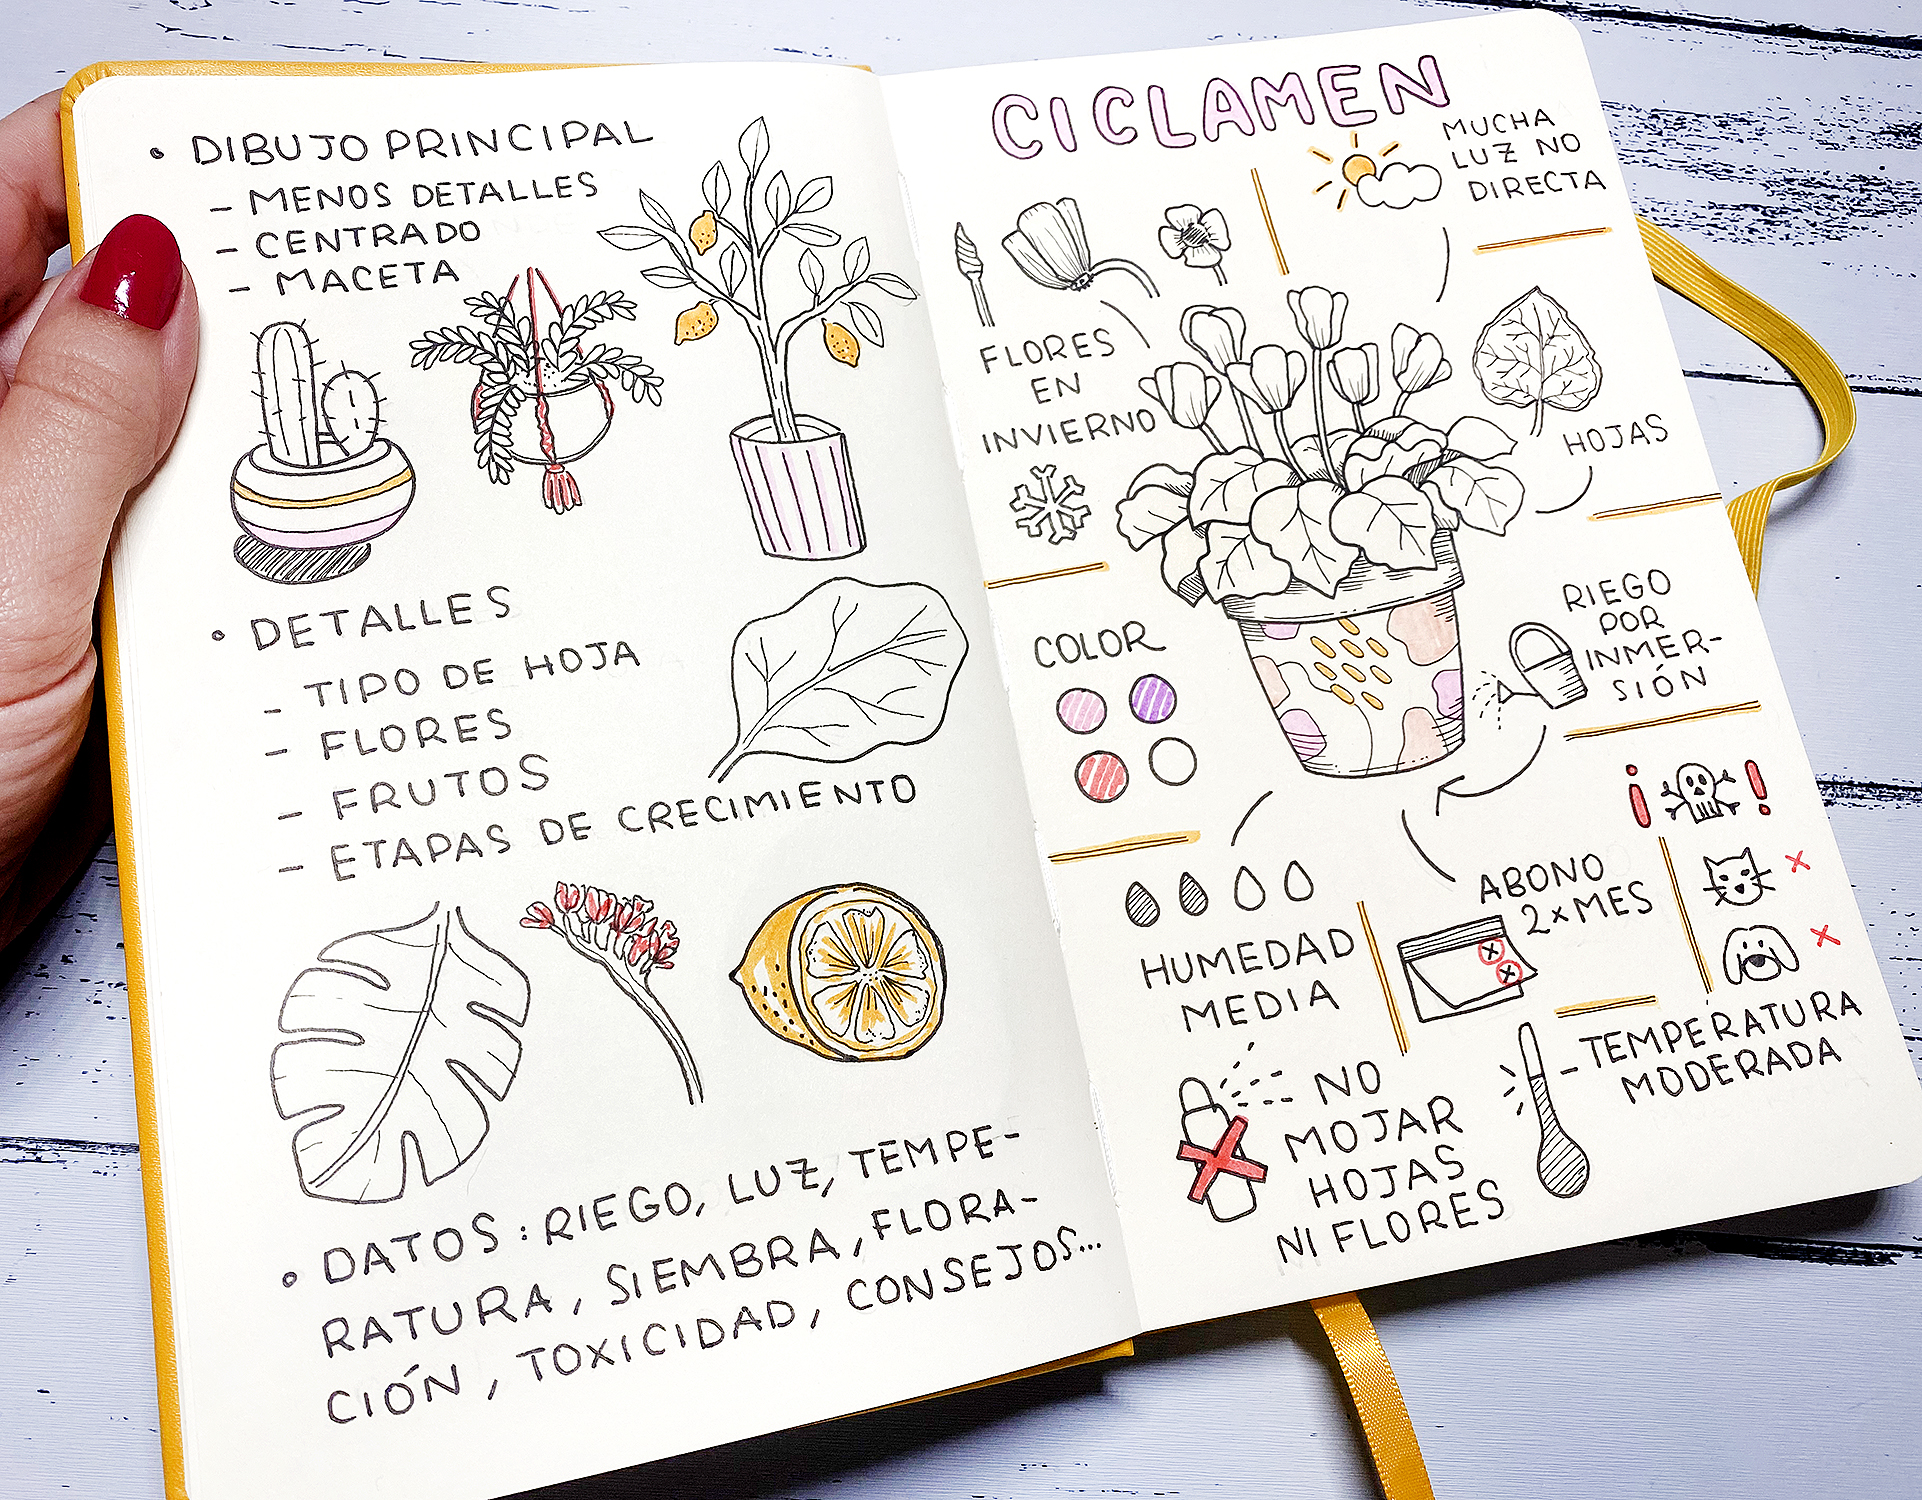 • DIBUJO PRINCIPAL
- MENOS DETALLES
- CENTRADO
- MACETA
• DETALLES
- TIPO DE HOJA
- FLORES
- FRUTOS
- ETAPAS DE CRECIMIENTO
• DATOS: RIEGO, LUZ, TEMPE-
RATURA, SIEMBRA, FLORA-
CIÓN, TOXICIDAD, CONSEJOS...
CICLAMEN
MUCHA
LUZ NO
DIRECTA
FLORES
EN
INVIERNO
HOJAS
COLOR
RIEGO
POR
INMER-
SIÓN
¡ !
HUMEDAD
MEDIA
ABONO
2xMES
NO
MOJAR
HOJAS
NI FLORES
- TEMPERATURA
MODERADA